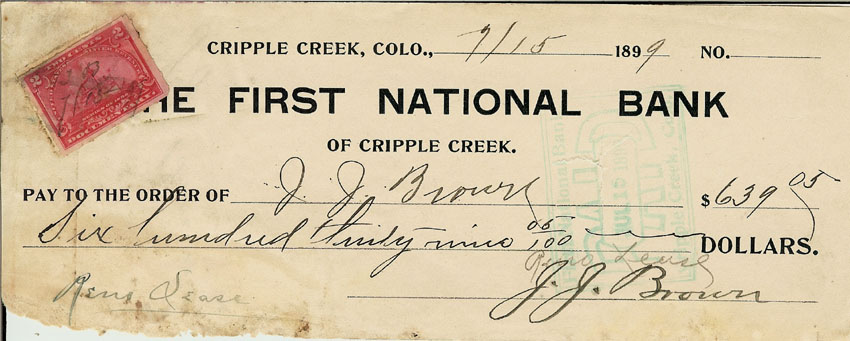 CRIPPLE CREEK, COLO., 7/15 1899 NO.
THE FIRST NATIONAL BANK
OF CRIPPLE CREEK.
PAY TO THE ORDER OF J. J. Brown $639 05
Six hundred thirty nine 05/100 DOLLARS.
Reno Lease
J. J. Brown
Reno Lease
2 2
DOCUMENTARY
PAID